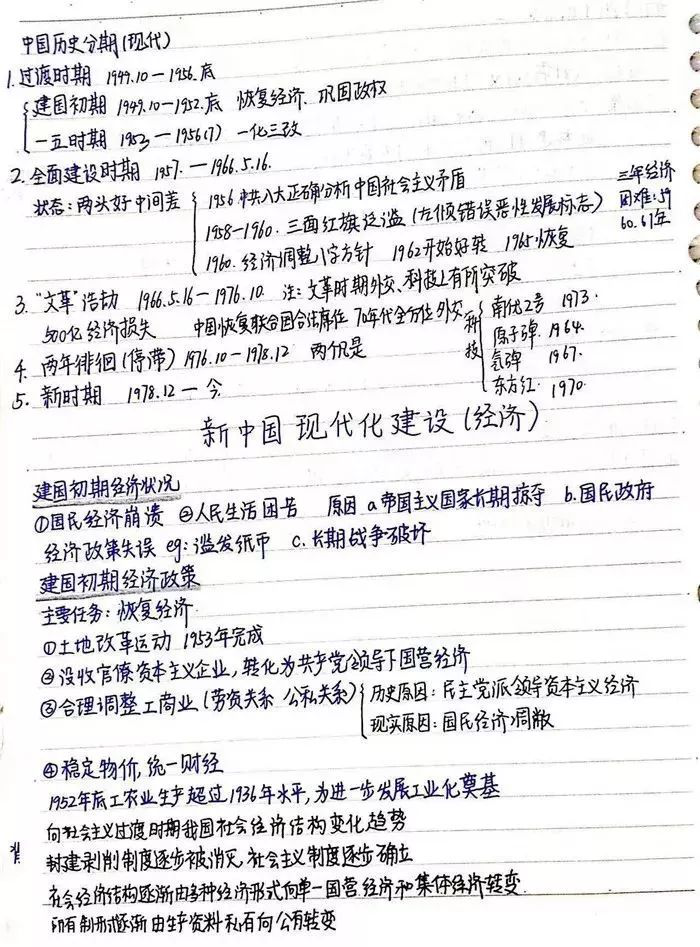 中国历史分期(现代)
1.过渡时期 1949.10—1956.底
建国初期 1949.10—1952.底 恢复经济、巩固政权
一五时期 1953—1956(7) 一化三改
2.全面建设时期 1957.—1966.5.16.
状态:两头好中间差
1956.中共八大正确分析中国社会主义矛盾
1958-1960.三面红旗泛滥(左倾错误恶性发展标志)
三年经济
困难:59
60.61年
1960.经济调整八字方针 1962开始好转 1965恢复
3."文革"浩劫 1966.5.16—1976.10. 注:文革时期外交、科技上有所突破
500亿经济损失 中国恢复联合国合法席位 70年代全方位外交
科技
南优2号 1973.
原子弹 1964.
氢弹 1967.
东方红. 1970.
4.两年徘徊(停滞)1976.10-1978.12 两个凡是
5.新时期 1978.12—今
新中国现代化建设(经济)
建国初期经济状况
①国民经济崩溃 ②人民生活困苦 原因 a.帝国主义国家长期掠夺 b.国民政府
经济政策失误 eg:滥发纸币 c.长期战争破坏
建国初期经济政策
主要任务:恢复经济
①土地改革运动 1953年完成
②没收官僚资本主义企业,转化为共产党领导下国营经济
③合理调整工商业(劳资关系 公私关系)
历史原因:民主党派领导资本主义经济
现实原因:国民经济凋敝
④稳定物价,统一财经
1952年底工农业生产超过1936年水平,为进一步发展工业化奠基
向社会主义过渡时期我国社会经济结构变化趋势
封建剥削制度逐步被消灭,社会主义制度逐步确立
社会经济结构逐渐由多种经济形式向单一国营经济和集体经济转变
所有制形式逐渐由生产资料私有向公有转变